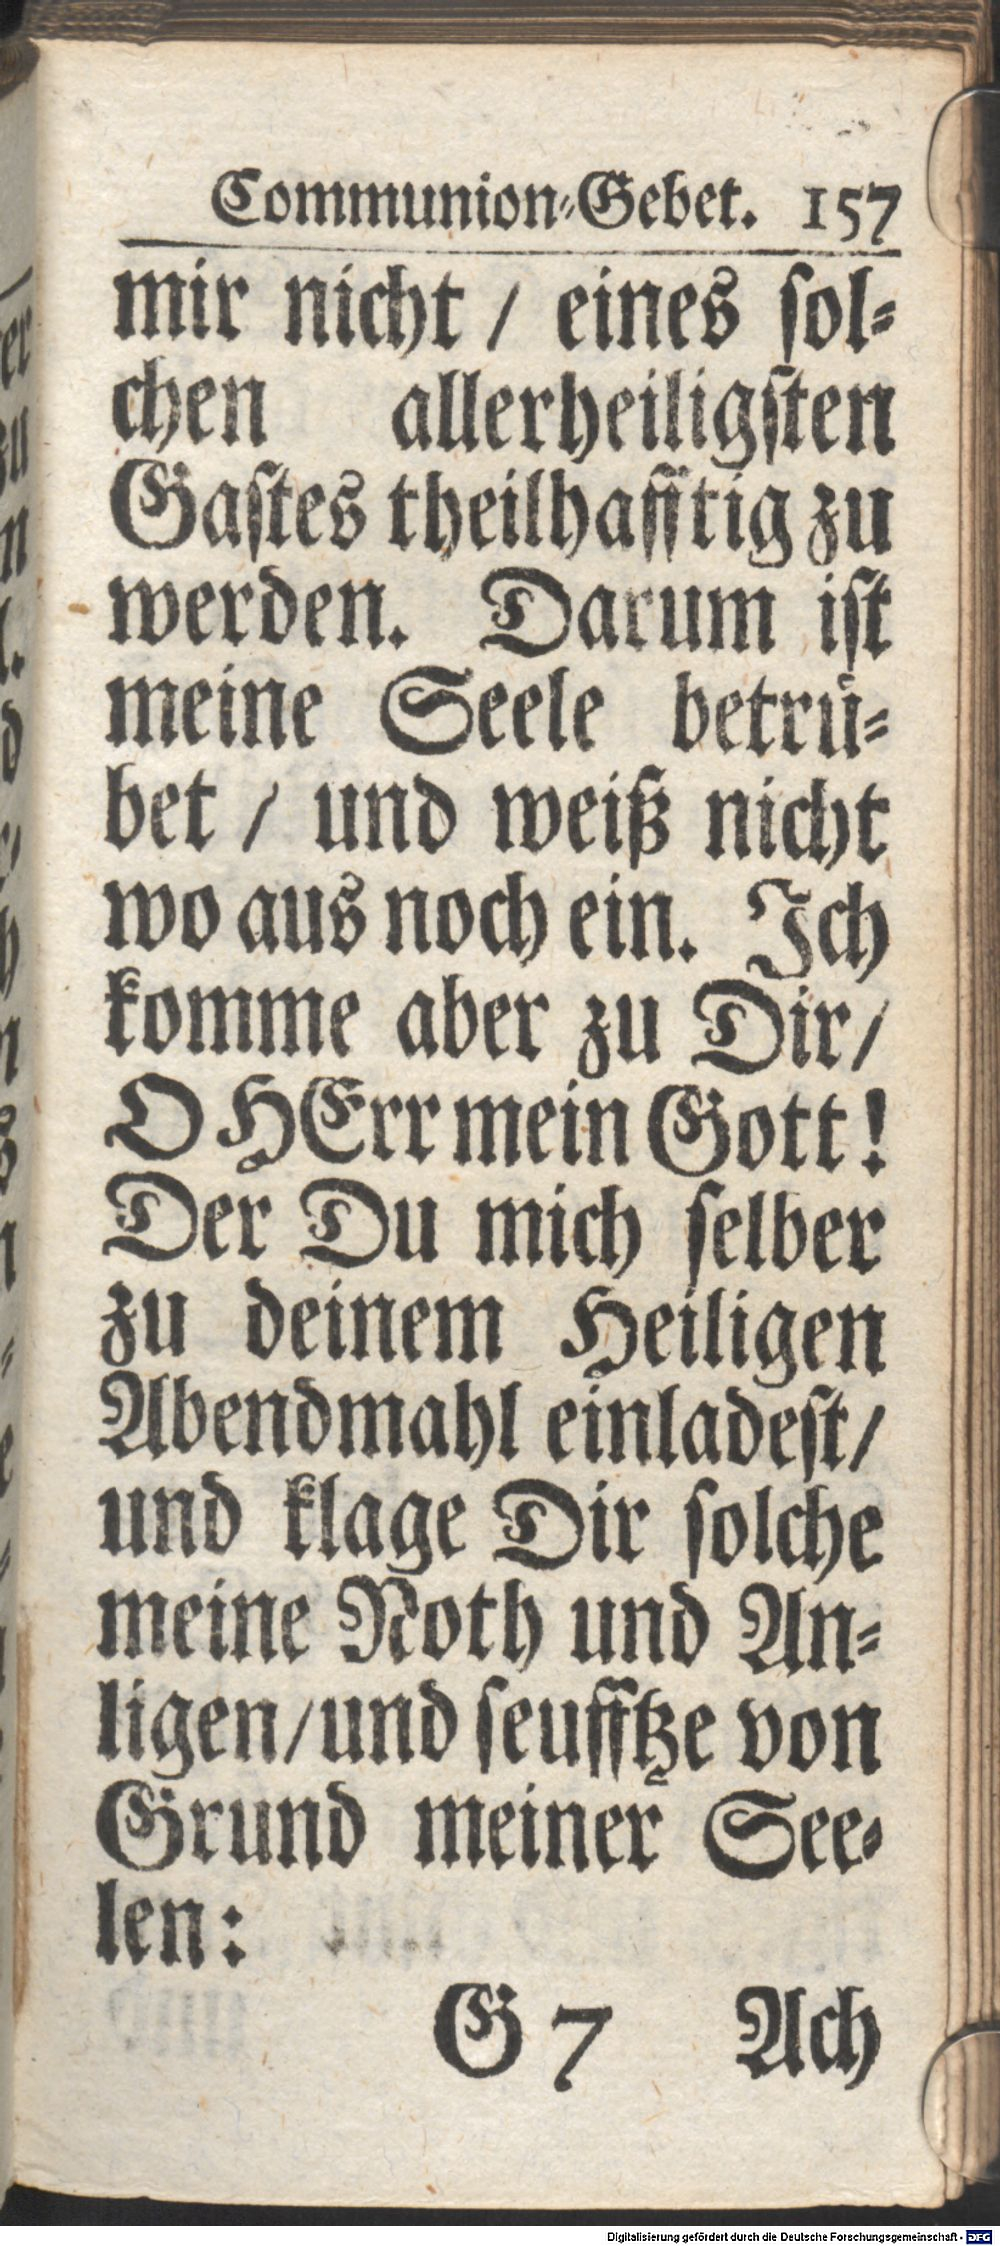 Communion-Gebet. 157
mir nicht / eines sol-
chen allerheiligsten
Gastes theilhafftig zu
werden. Darum ist
meine Seele betrü-
bet / und weiß nicht
wo aus noch ein. Ich
komme aber zu Dir /
O HErr mein Gott!
Der Du mich selber
zu deinem Heiligen
Abendmahl einladest /
und klage Dir solche
meine Noth und An-
ligen / und seufftze von
Grund meiner See-
len:
G 7 Ach
Digitalisierung gefördert durch die Deutsche Forschungsgemeinschaft - DFG